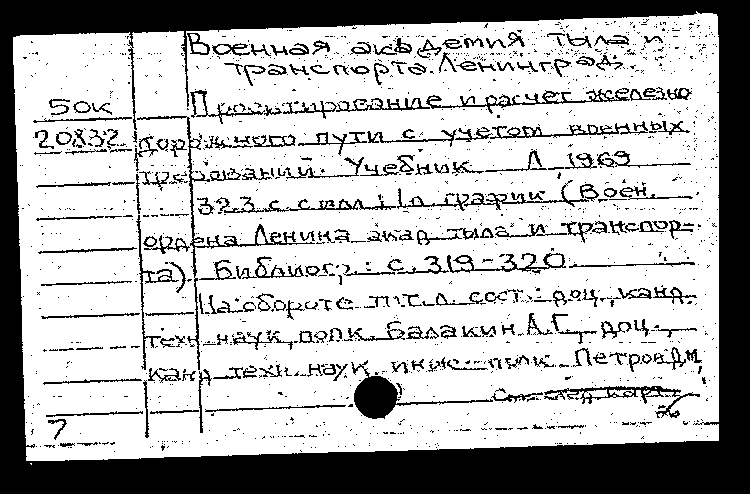 Военная академия тыла и
транспорта. Ленинград.
50к Проектирование и расчет железно
20832 дорожного пути с учетом военных
требований. Учебник Л 1969
323 с. с илл; 1 л. график (Воен.
ордена Ленина акад тыла и транспор-
та). Библиогр.: с. 319-320
На обороте т.т.л. сост.: доц., канд.
техн наук, полк. Балакин А.Г., доц.,
канд техн. наук инж.-полк Петров Д.М,
См. след карт.
7